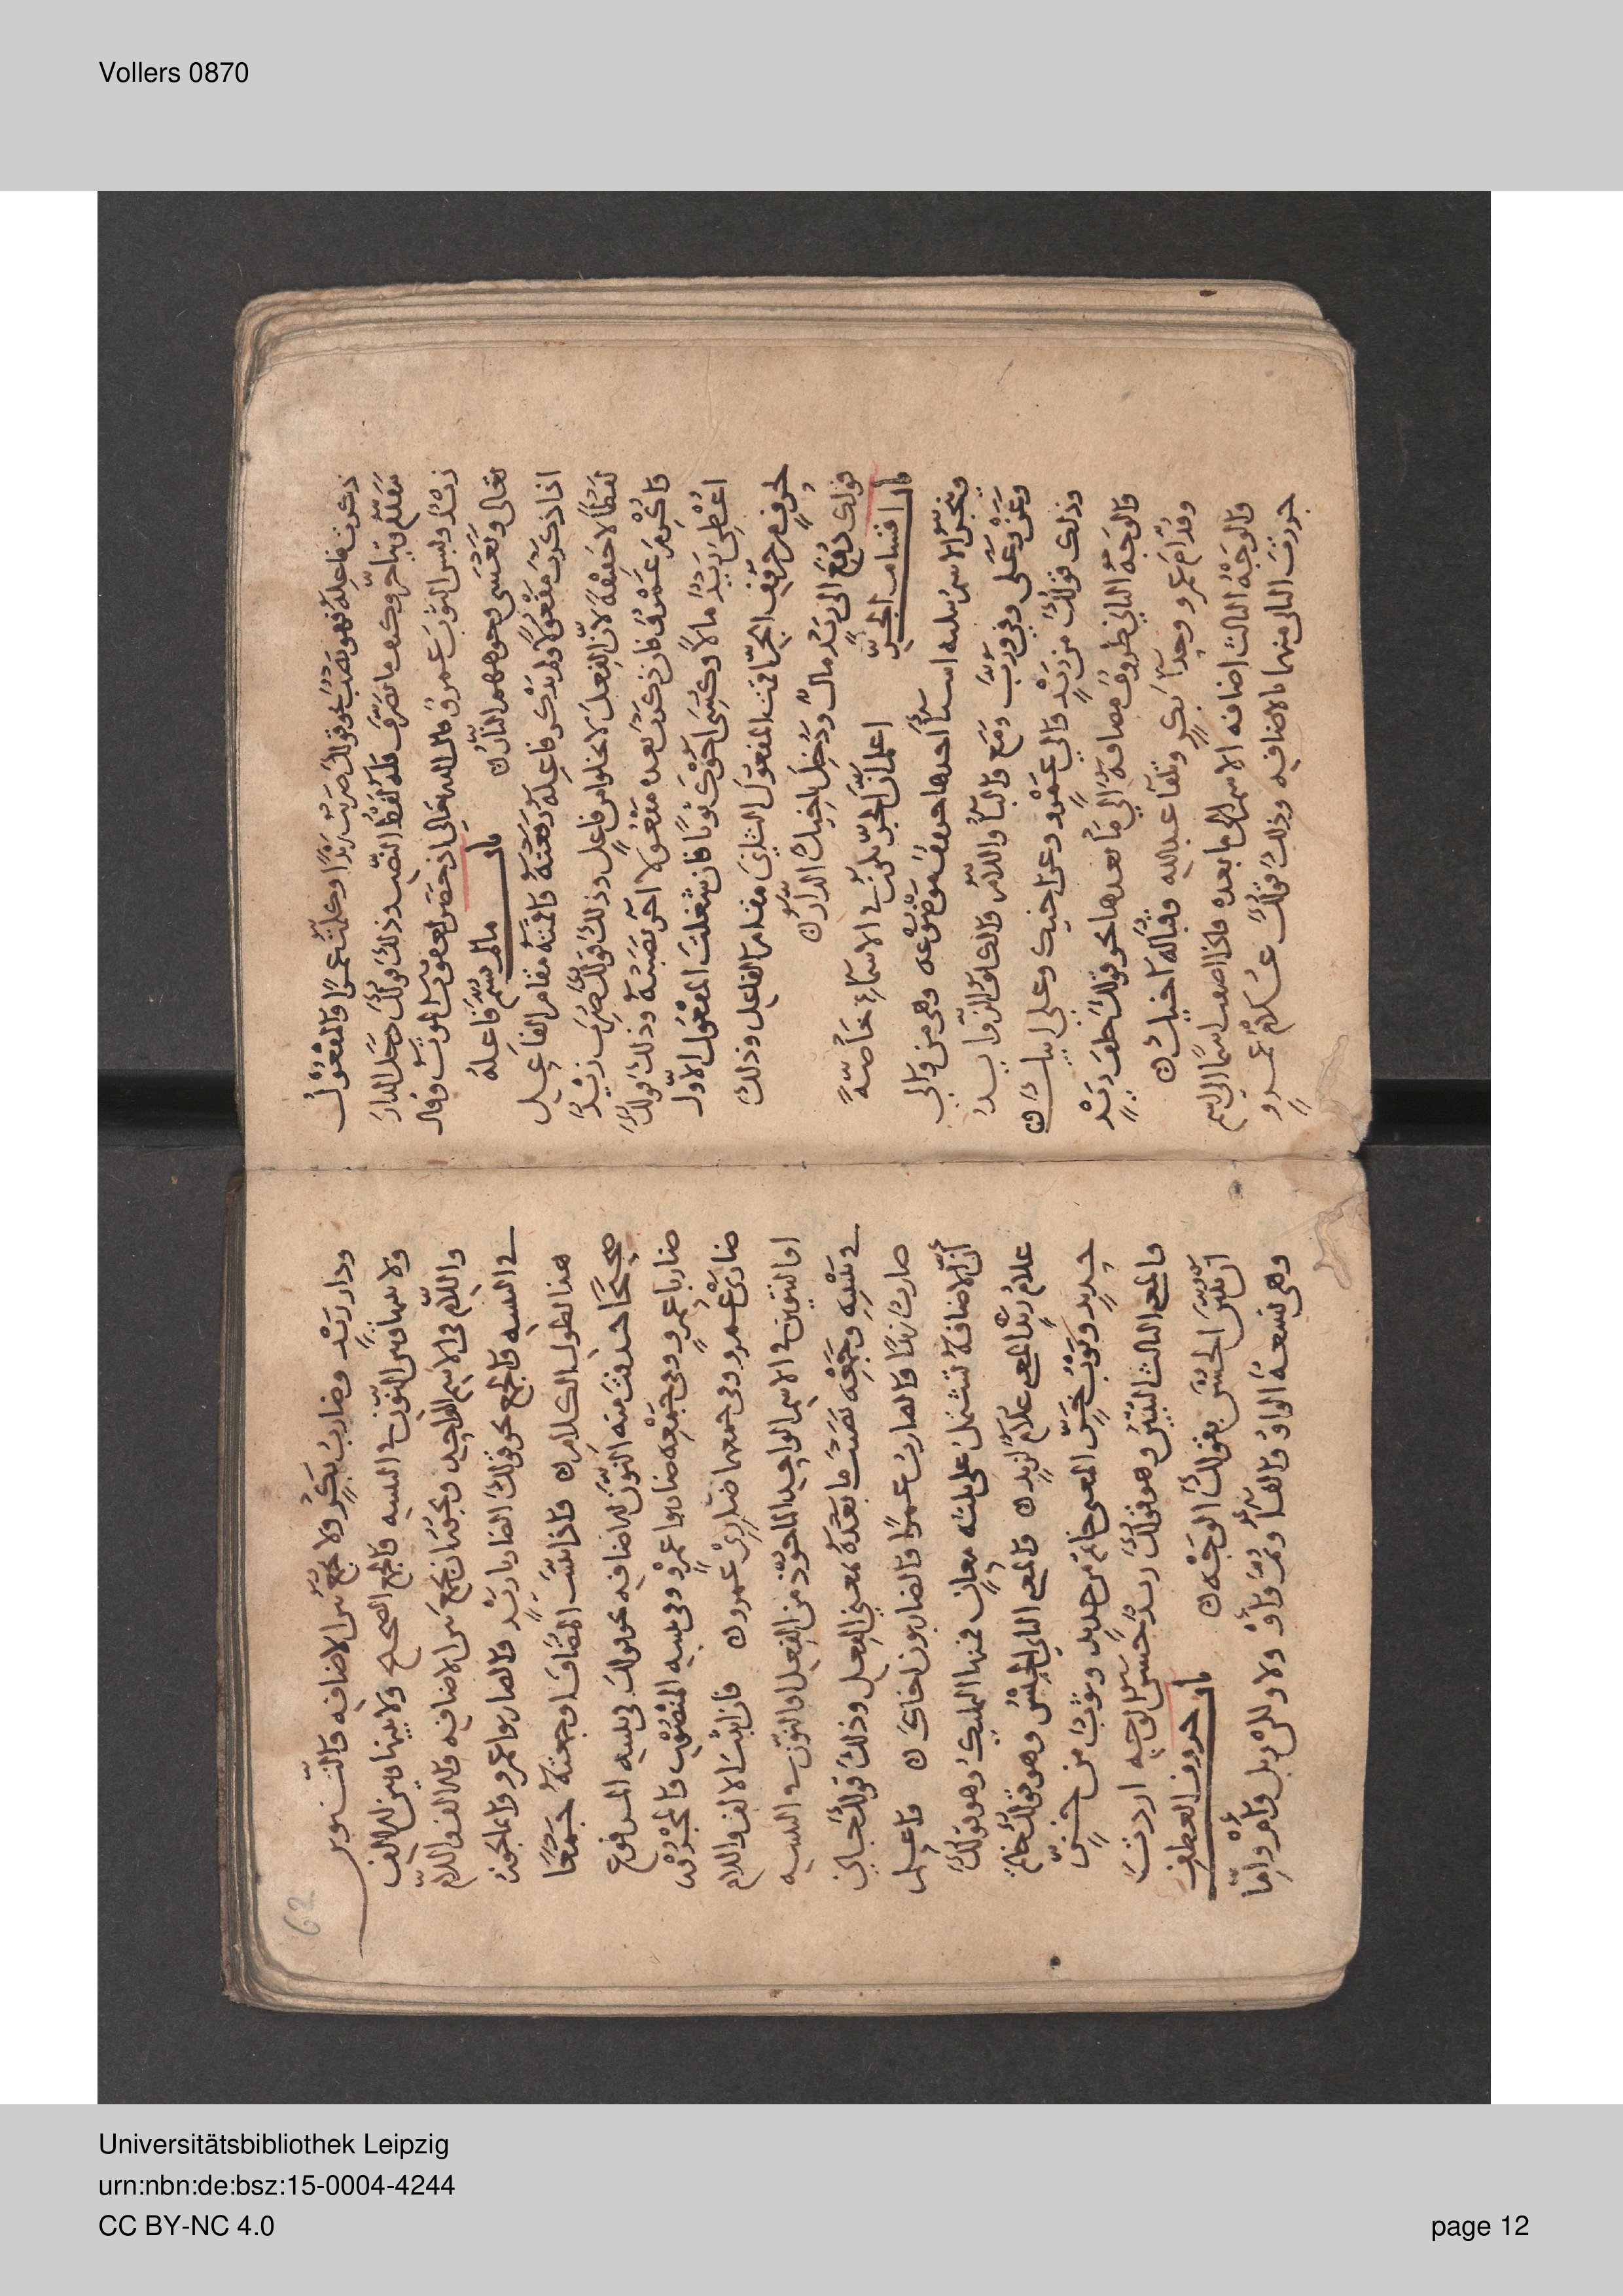 Vollers 0870
ذكرت فاعله فهو نصب نحو قولك ضربت زيدا وكلمت عمرا والمفعول
يتقدم ويتاخر وكيف ما تصرف فله لفظ النصب وذلك قولك دخل الدار
زيد ولبس الثوب عمرو قال الله تعالى اذ حضر يعقوب الموت وقال
تعالى وتغشى وجوههم النار
باب ما لم يسم فاعله
اذا ذكرت مفعولا ولم تذكر فاعله رفعته واقمته مقام الفاعل
لفظا لا حقيقة لان الفعل لا يخلوا من فاعل وذلك قولك ضرب زيد
واكرم عمرو فان ذكرت بعده مفعولا اخر نصبته وذلك قولك
اعطى زيد مالا وكسى اخوك ثوبا فان شغلت المفعول الاول
بحرف من حروف الجر اقمت المفعول الثاني مقام الفاعل وذلك
قولك دفع الى زيد مال ودخل اخيك الدار
باب اقسام الجر
اعلم ان الجر يكون في الاسماء خاصة
وينجر الاسم بثلثه اشيا احدها حروف موضوعه وهى من والى
وعن وعلى وفي ورب ومع والبا واللام والكاف الزوايد
وذلك قولك من زيد والى عمرو وعن اخيك وعلى ابيك
والوجه الثاني ظروف مضافة الى ما بعدها نحو قولك خلف زيد
وقدام عمرو وحذا بكر وتلقا عبد الله وقباله اخيك
والوجه الثالث اضافه الاسم الى ما بعده فاذا اضفت اسما الى اسم
جررت الثاني منهما بالاضافيه وذلك قولك غلام عمرو
62
ودار زيد وضارب بكر ولا يجمع بين الاضافه والتنوين
ولا بينها وبين النون في التثنيه والجمع الصحيح ولا بينها وبين الالف
واللام في الاسم الواحد ويجوز ان يجمع بين الاضافيه والالف واللام
في التثنيه والجمع نحو قولك الضاربا زيد والضاربوا عمرو وانما يجوز
هذا لطول الكلام فاذا ثنيت المضاف او جمعته جمعا
صحيحا حذفت منه النون للاضافيه نحو قولك في تثنيه المرفوع
ضاربا عمرو وفي جمعه ضاربوا عمرو وفي تثنيه المنصوب والمجرور
ضاربى عمرو وفي جمعهما ضاربى عمرو فان اثبت الالف واللام
او التنوين في الاسم الواحد الماخوذ من الفعل او النون في التثنيه
في تثنيته وجمعه نصبت ما بعده بمعنى الفعل وذلك قولك جاني
ضارب زيدا والضارب عمرا والضاربون اخاك واعلم
ان الاضافة تشتمل على ثلثه معان فمنها الملك وهو قولك
غلام زيد المعنى غلام لزيد والمعنى الثاني الجنس وهو قولك خاتم
حديد وثوب خز المعنى خاتم من حديد وثوب من خز
والمعنى الثالث التبيين وهو قولك زيد حسن الوجه اردت
ان تبين الحسن بقولك الوجه
باب حروف العطف
وهى تسعة الواو والفا وثم واو ولا ولكن وبل وام واما
Universitätsbibliothek Leipzig
urn:nbn:de:bsz:15-0004-4244
CC BY-NC 4.0
page 12